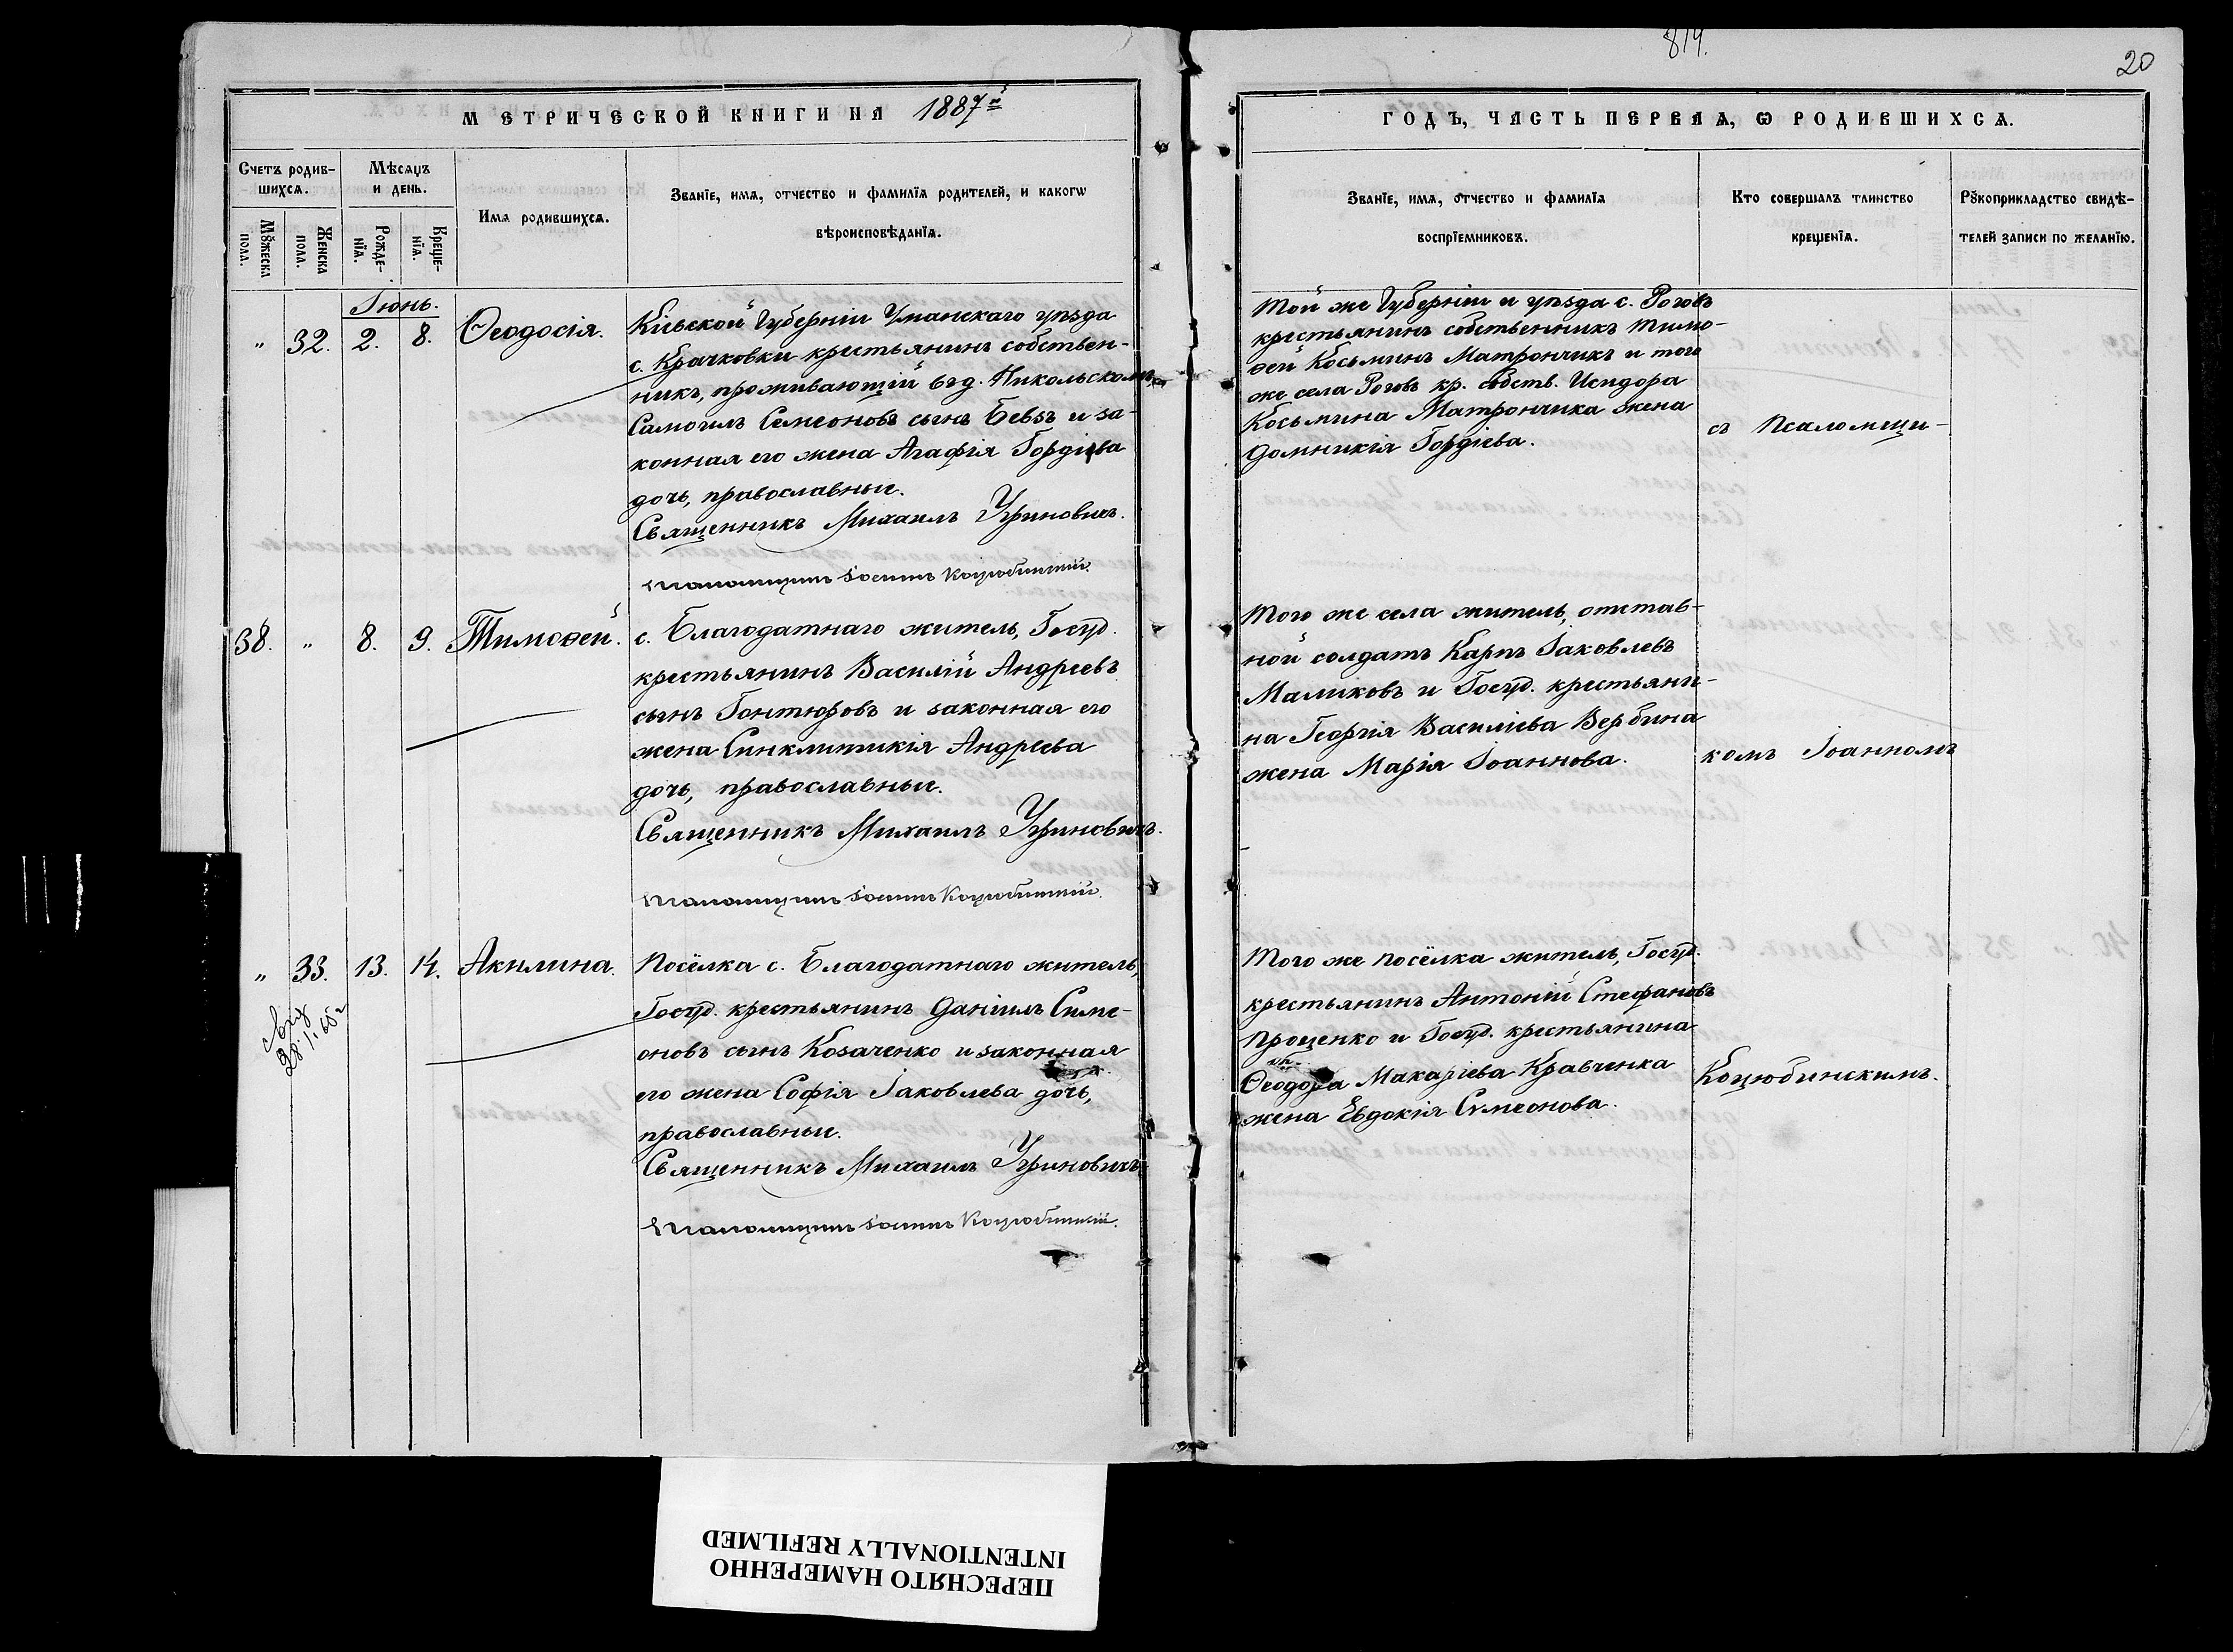 814.
20
МЕТРИЧЕСКОЙ КНИГИ НА 1887й
ГОДЪ, ЧАСТЬ ПЕРВАѦ, Ѡ РОДИВШИХСѦ.
Счетъ родив-
шихсѧ.
Мѣсяцъ
и день.
Имѧ родившихсѧ.
Званїе, имѧ, отчество и фамилїѧ родителей, и какогѡ
вѣроисповѣданїѧ.
Мꙋжеска
пола.
Женска
пола.
Рожде-
нїѧ.
Креще-
нїѧ.
Званїе, имѧ, отчество и фамилїѧ
воспрїемниковъ.
Кто совершалъ таинство
крещенїѧ.
Рꙋкоприкладство свидѣ-
телей записи по желанїю.
Іюнь.
" 32. 2. 8. Ѳеодосія.
Кіевской Губерніи Уманскаго уѣзда
с. Крачковки крестьянинъ собствен-
никъ, проживающій въ д. Никольскомъ
Самоилъ Семеоновъ сынъ Бевзъ и за-
конная его жена Агафія Гордіева
дочь, православные.
Священникъ Михаилъ Угриновичъ.
Псаломщикъ Іоаннъ Коцюбинскій.
Той же Губерніи и уѣзда с. Роговъ
крестьянинъ собственникъ Тимо-
ѳей Косьминъ Матрончикъ и того
же села Роговъ кр. собств. Исидора
Косьмина Матрончика жена
Домникія Гордіева.
съ Псаломщи-
38. " 8. 9. Тимоѳей.
с. Благодатнаго житель, Госуд.
крестьянинъ Василій Андреевъ
сынъ Гонтюровъ и законная его
жена Синклитикія Андреева
дочь, православные.
Священникъ Михаилъ Угриновичъ.
Псаломщикъ Іоаннъ Коцюбинскій.
Того же села житель, отстав-
ной солдатъ Карпъ Іаковлевъ
Маликовъ и Госуд. крестьяни-
на Георгія Василіева Вербина
жена Марія Іоаннова.
комъ Іоанномъ
" 33. 13. 14. Акилина.
28/I.65г
Посёлка с. Благодатнаго житель,
Госуд. крестьянинъ Даніилъ Симе-
оновъ сынъ Козаченко и законная
его жена Софія Іаковлева дочь,
православные.
Священникъ Михаилъ Угриновичъ
Псаломщикъ Іоаннъ Коцюбинскій.
Того же посёлка житель, Госуд.
крестьянинъ Антоній Стефановъ
Проценко и Госуд. крестьянина
Ѳеодора Макаріева Кравченка
жена Евдокія Сѵмеонова.
Коцюбинскимъ.
ПЕРЕСНЯТО НАМЕРЕННО
INTENTIONALLY REFILMED